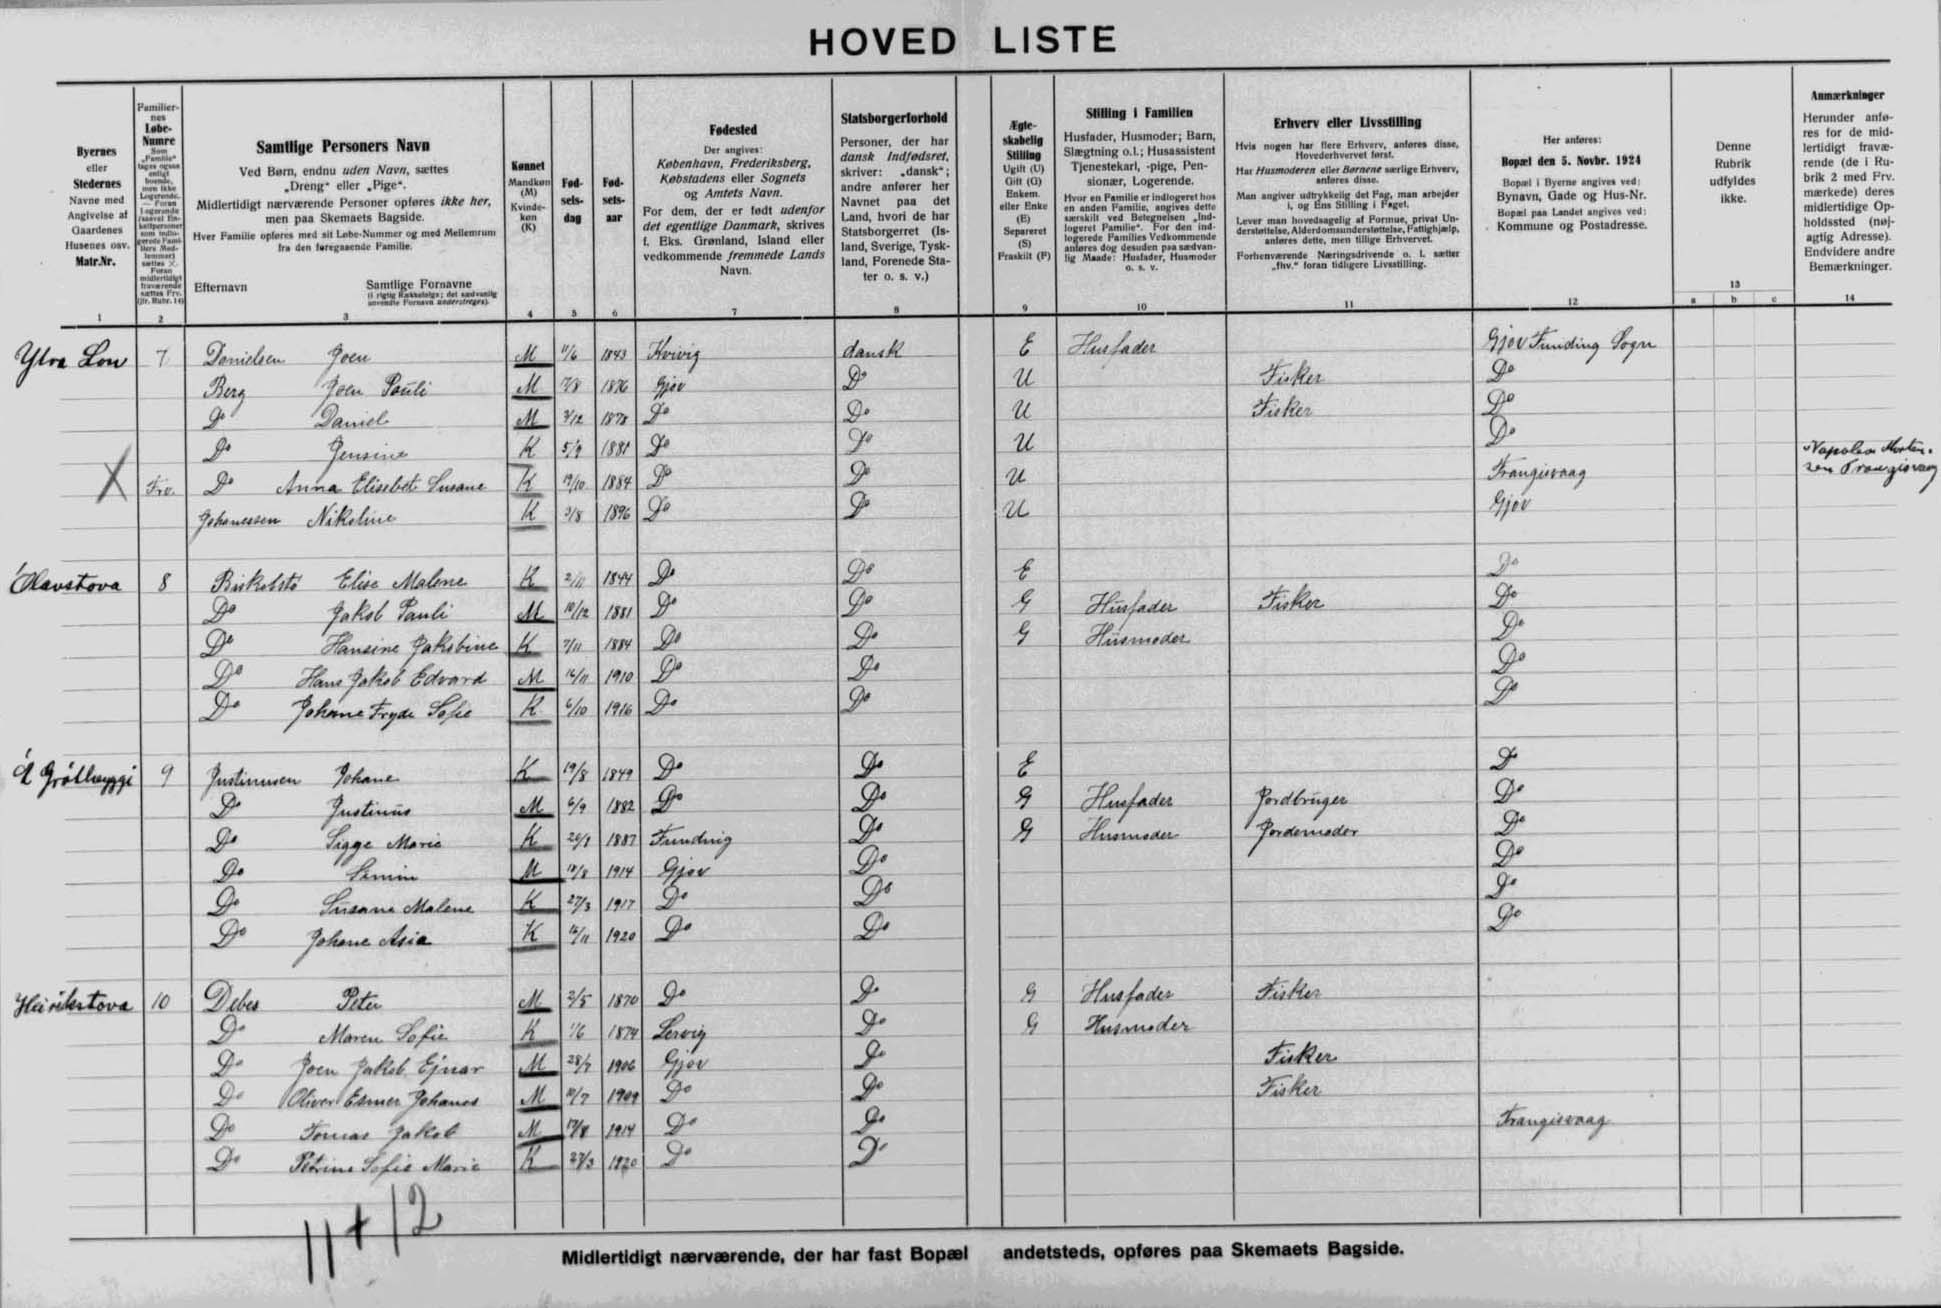 HOVED LISTE
Byernes
eller
Stedernes
Navne med
Angivelse af
Gaardenes
Husenes osv.
Matr.Nr.
1
Familier-
nes
Løbe-
Numre
2
Samtlige Personers Navn
Ved Børn, endnu uden Navn, sættes
„Dreng" eller „Pige".
Midlertidigt nærværende Personer opføres ikke her,
men paa Skemaets Bagside.
Hver Familie opføres med sit Løbe-Nummer og med Mellemrum
fra den foregaaende Familie.
Efternavn
Samtlige Fornavne
(i rigtig Rækkefølge; det sædvanlig
anvendte Fornavn understreges).
3
Kønnet
Mandkøn
(M)
Kvinde-
køn
(K)
4
Fød-
sels-
dag
5
Fød-
sels-
aar
6
Fødested
Der angives:
København, Frederiksberg,
Købstadens eller Sognets
og Amtets Navn.
For dem, der er født udenfor
det egentlige Danmark, skrives
f. Eks. Grønland, Island eller
vedkommende fremmede Lands
Navn.
7
Statsborgerforhold
Personer, der har
dansk Indfødsret,
skriver: „dansk";
andre anfører her
Navnet paa det
Land, hvori de har
Statsborgerret (Is-
land, Sverige, Tysk-
land, Forenede Sta-
ter o. s. v.)
8
Ægte-
skabelig
Stilling
Ugift (U)
Gift (G)
Enkem.
eller Enke
(E)
Separeret
(S)
Fraskilt (F)
9
Stilling i Familien
Husfader, Husmoder; Barn,
Slægtning o.l.; Husassistent
Tjenestekarl, -pige, Pen-
sionær, Logerende.
Hvor en Familie er indlogeret hos
en anden Familie, angives dette
særskilt ved Betegnelsen „Ind-
logeret Familie". For den ind-
logerede Families Vedkommende
anføres dog desuden paa sædvan-
lig Maade: Husfader, Husmoder
o. s. v.
10
Erhverv eller Livsstilling
Hvis nogen har flere Erhverv, anføres disse,
Hovederhvervet først.
Har Husmoderen eller Børnene særlige Erhverv,
anføres disse.
Man angiver udtrykkelig det Fag, man arbejder
i, og Ens Stilling i Faget.
Lever man hovedsagelig af Formue, privat Un-
derstøttelse, Alderdomsunderstøttelse, Fattighjælp,
anføres dette, men tillige Erhvervet.
Forhenværende Næringsdrivende o. l. sætter
„fhv." foran tidligere Livsstilling.
11
Her anføres:
Bopæl den 5. Novbr. 1924
Bopæl i Byerne angives ved:
Bynavn, Gade og Hus-Nr.
Bopæl paa Landet angives ved:
Kommune og Postadresse.
12
Denne
Rubrik
udfyldes
ikke.
13
a b c
Anmærkninger
Herunder anfø-
res for de mid-
lertidigt fravæ-
rende (de i Ru-
brik 2 med Frv.
mærkede) deres
midlertidige Op-
holdssted (nøj-
agtig Adresse).
Endvidere andre
Bemærkninger.
14
7 Danielsen Joen M 11/6 1843 Kvivig dansk E Husfader Gjov Funding Sogn
Berg Joen Pauli M 7/8 1876 Gjov Do U Fisker Do
Do Daniel M 3/12 1878 Do Do U Fisker Do
Do Jensine K 5/9 1881 Do Do U Do
X Frv. Do Anna Elisebet Susane K 19/10 1884 Do Do U Trangisvaag Napoleon Morten-
sen Trangisvaag
Johanessen Nikoline K 3/8 1896 Do Do U Gjov
Ólavstova 8 Biskobstø Elise Malene K 2/11 1844 Do Do E Do
Do Jakob Pauli M 10/12 1881 Do Do G Husfader Fisker Do
Do Hansine Jakobine K 7/11 1884 Do Do G Husmoder Do
Do Hans Jakob Edvard M 16/11 1910 Do Do Do
Do Johane Fryde Sofie K 6/10 1916 Do Do Do
9 Justinusen Johane K 19/8 1849 Do Do E Do
Do Justinus M 6/9 1882 Do Do G Husfader Jordbruger Do
Do Sigge Marie K 1887 Funding Do G Husmoder Jordemoder Do
Do M 1914 Gjov Do Do
Do Susane Malene K 27/3 1917 Do Do Do
Do Johane Asia K 1920 Do Do Do
Heinikstova 10 Debes Peter M 2/5 1870 Do Do G Husfader Fisker
Do Maren Sofie K 1/6 1874 Lervig Do G Husmoder
Do Joen Jakob Ejnar M 28/7 1906 Gjov Do Fisker
Do Oliver Esmer Johanes M 10/7 1909 Do Do Fisker
Do Tomas Jakob M 1914 Do Do Trangisvaag
Do Petrine Sofie Marie K 27/3 1920 Do Do
11 + 12
Midlertidigt nærværende, der har fast Bopæl andetsteds, opføres paa Skemaets Bagside.